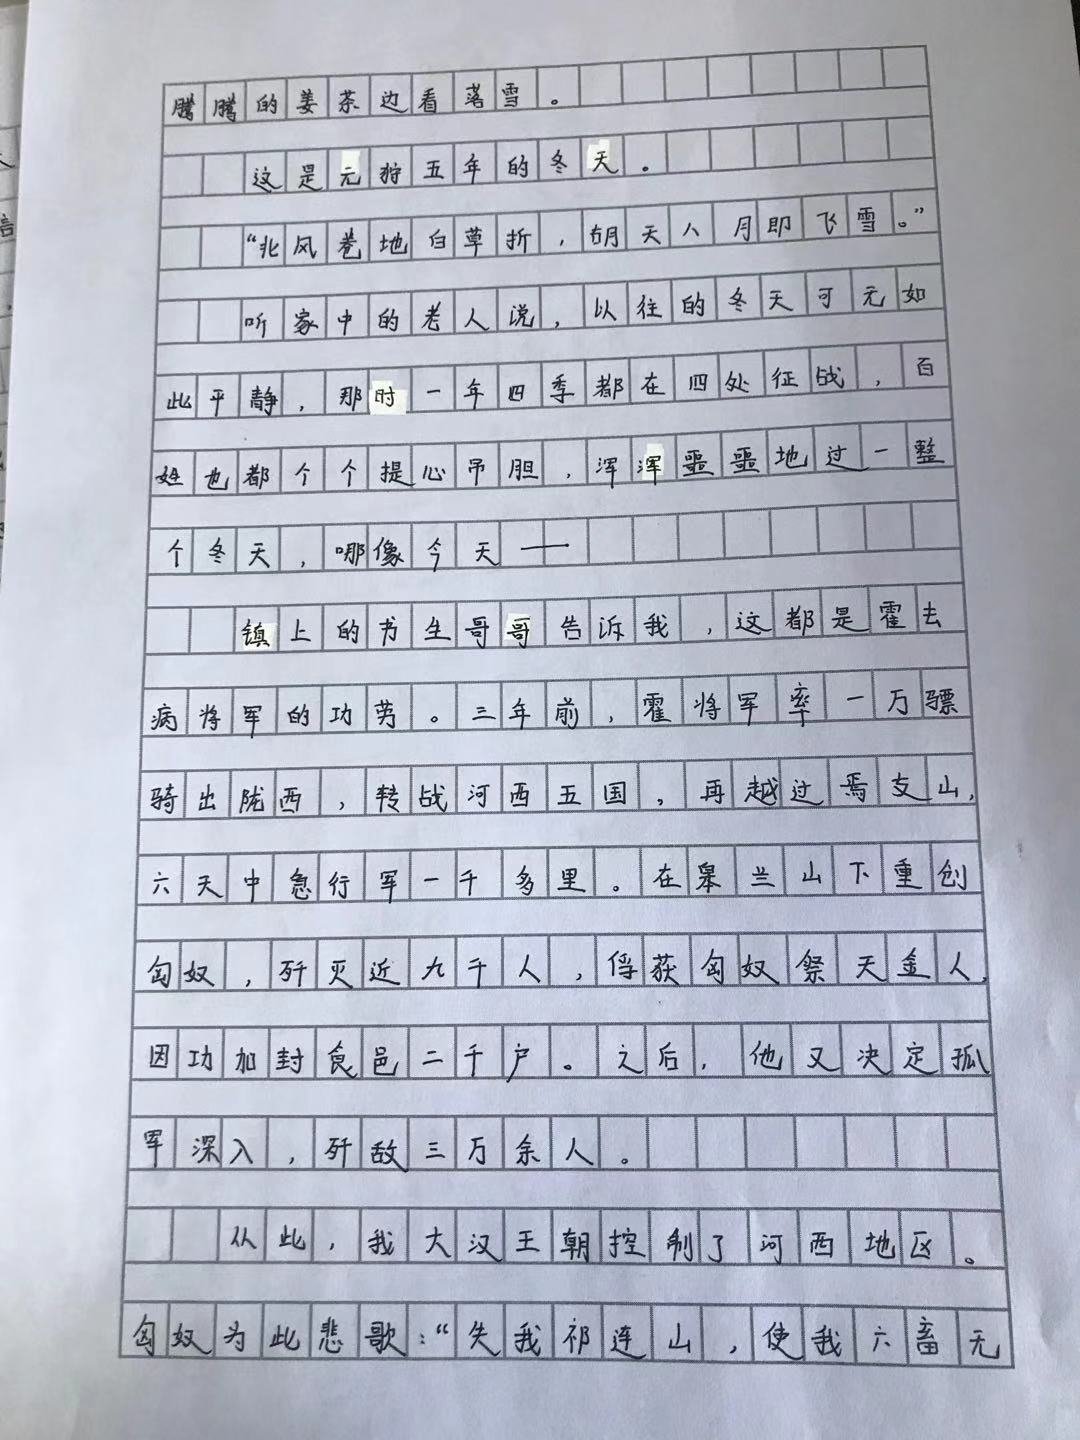 腾腾的姜茶边看落雪。
这是元狩五年的冬天。
“北风卷地白草折，胡天八月即飞雪。”
听家中的老人说，以往的冬天可无如
此平静，那时一年四季都在四处征战，百
姓也都个个提心吊胆，浑浑噩噩地过一整
个冬天，哪像今天——
镇上的书生哥哥告诉我，这都是霍去
病将军的功劳。三年前，霍将军率一万骠
骑出陇西，转战河西五国，再越过焉支山，
六天中急行军一千多里。在皋兰山下重创
匈奴，歼灭近九千人，俘获匈奴祭天金人，
因功加封食邑二千户。之后，他又决定孤
军深入，歼敌三万余人。
从此，我大汉王朝控制了河西地区。
匈奴为此悲歌：“失我祁连山，使我六畜无